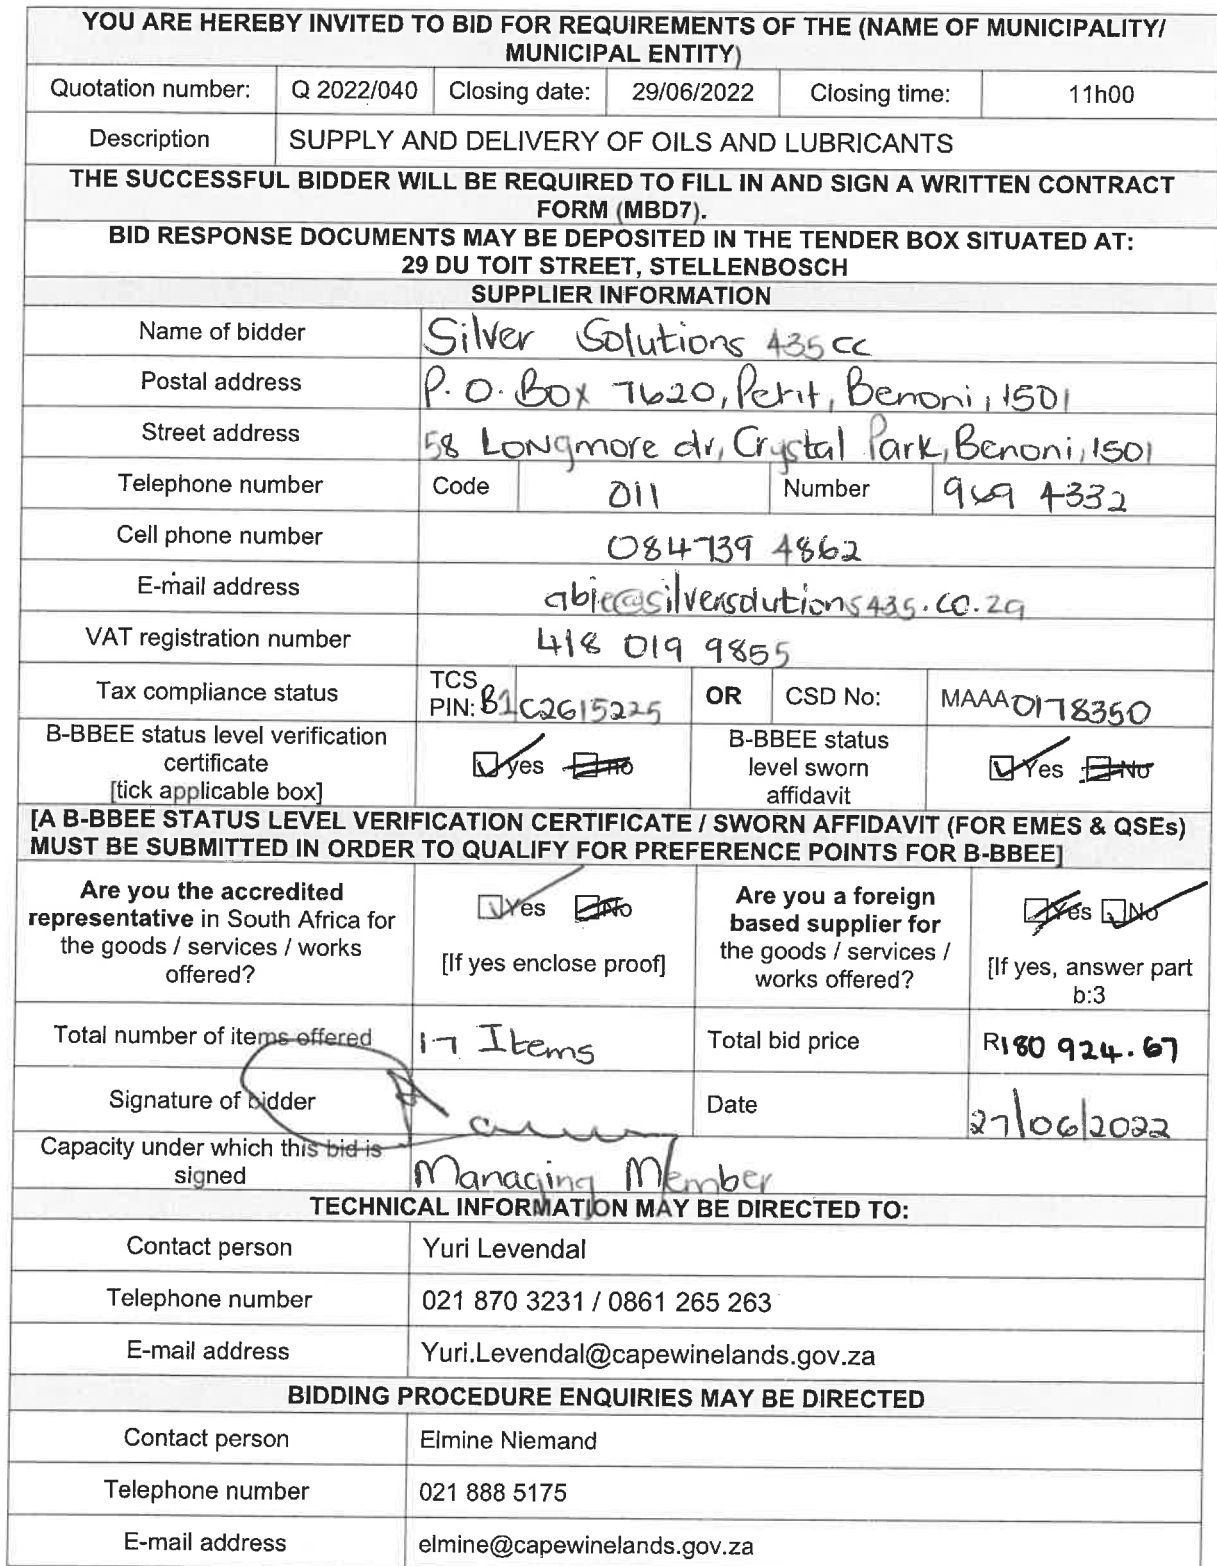 YOU ARE HEREBY INVITED TO BID FOR REQUIREMENTS OF THE (NAME OF MUNICIPALITY/
MUNICIPAL ENTITY)
Quotation number: Q 2022/040 Closing date: 29/06/2022 Closing time: 11h00
Description SUPPLY AND DELIVERY OF OILS AND LUBRICANTS
THE SUCCESSFUL BIDDER WILL BE REQUIRED TO FILL IN AND SIGN A WRITTEN CONTRACT
FORM (MBD7).
BID RESPONSE DOCUMENTS MAY BE DEPOSITED IN THE TENDER BOX SITUATED AT:
29 DU TOIT STREET, STELLENBOSCH
SUPPLIER INFORMATION
Name of bidder Silver Solutions 435 cc
Postal address P.O. Box 7620, Petit, Benoni, 1501
Street address 58 Longmore dr, Crystal Park, Benoni, 1501
Telephone number Code 011 Number 969 4332
Cell phone number 084 739 4862
E-mail address abie@silversolutions435.co.za
VAT registration number 418 019 9855
Tax compliance status TCS PIN: B1C2615225 OR CSD No: MAAA0178350
B-BBEE status level verification
certificate
[tick applicable box] Yes No
B-BBEE status
level sworn
affidavit Yes No
[A B-BBEE STATUS LEVEL VERIFICATION CERTIFICATE / SWORN AFFIDAVIT (FOR EMES & QSEs)
MUST BE SUBMITTED IN ORDER TO QUALIFY FOR PREFERENCE POINTS FOR B-BBEE]
Are you the accredited
representative in South Africa for
the goods / services / works
offered?
Yes No
[If yes enclose proof]
Are you a foreign
based supplier for
the goods / services /
works offered?
Yes No
[If yes, answer part
b:3
Total number of items offered 17 Items Total bid price R180 924.67
Signature of bidder Date 27/06/2022
Capacity under which this bid is
signed Managing Member
TECHNICAL INFORMATION MAY BE DIRECTED TO:
Contact person Yuri Levendal
Telephone number 021 870 3231 / 0861 265 263
E-mail address Yuri.Levendal@capewinelands.gov.za
BIDDING PROCEDURE ENQUIRIES MAY BE DIRECTED
Contact person Elmine Niemand
Telephone number 021 888 5175
E-mail address elmine@capewinelands.gov.za